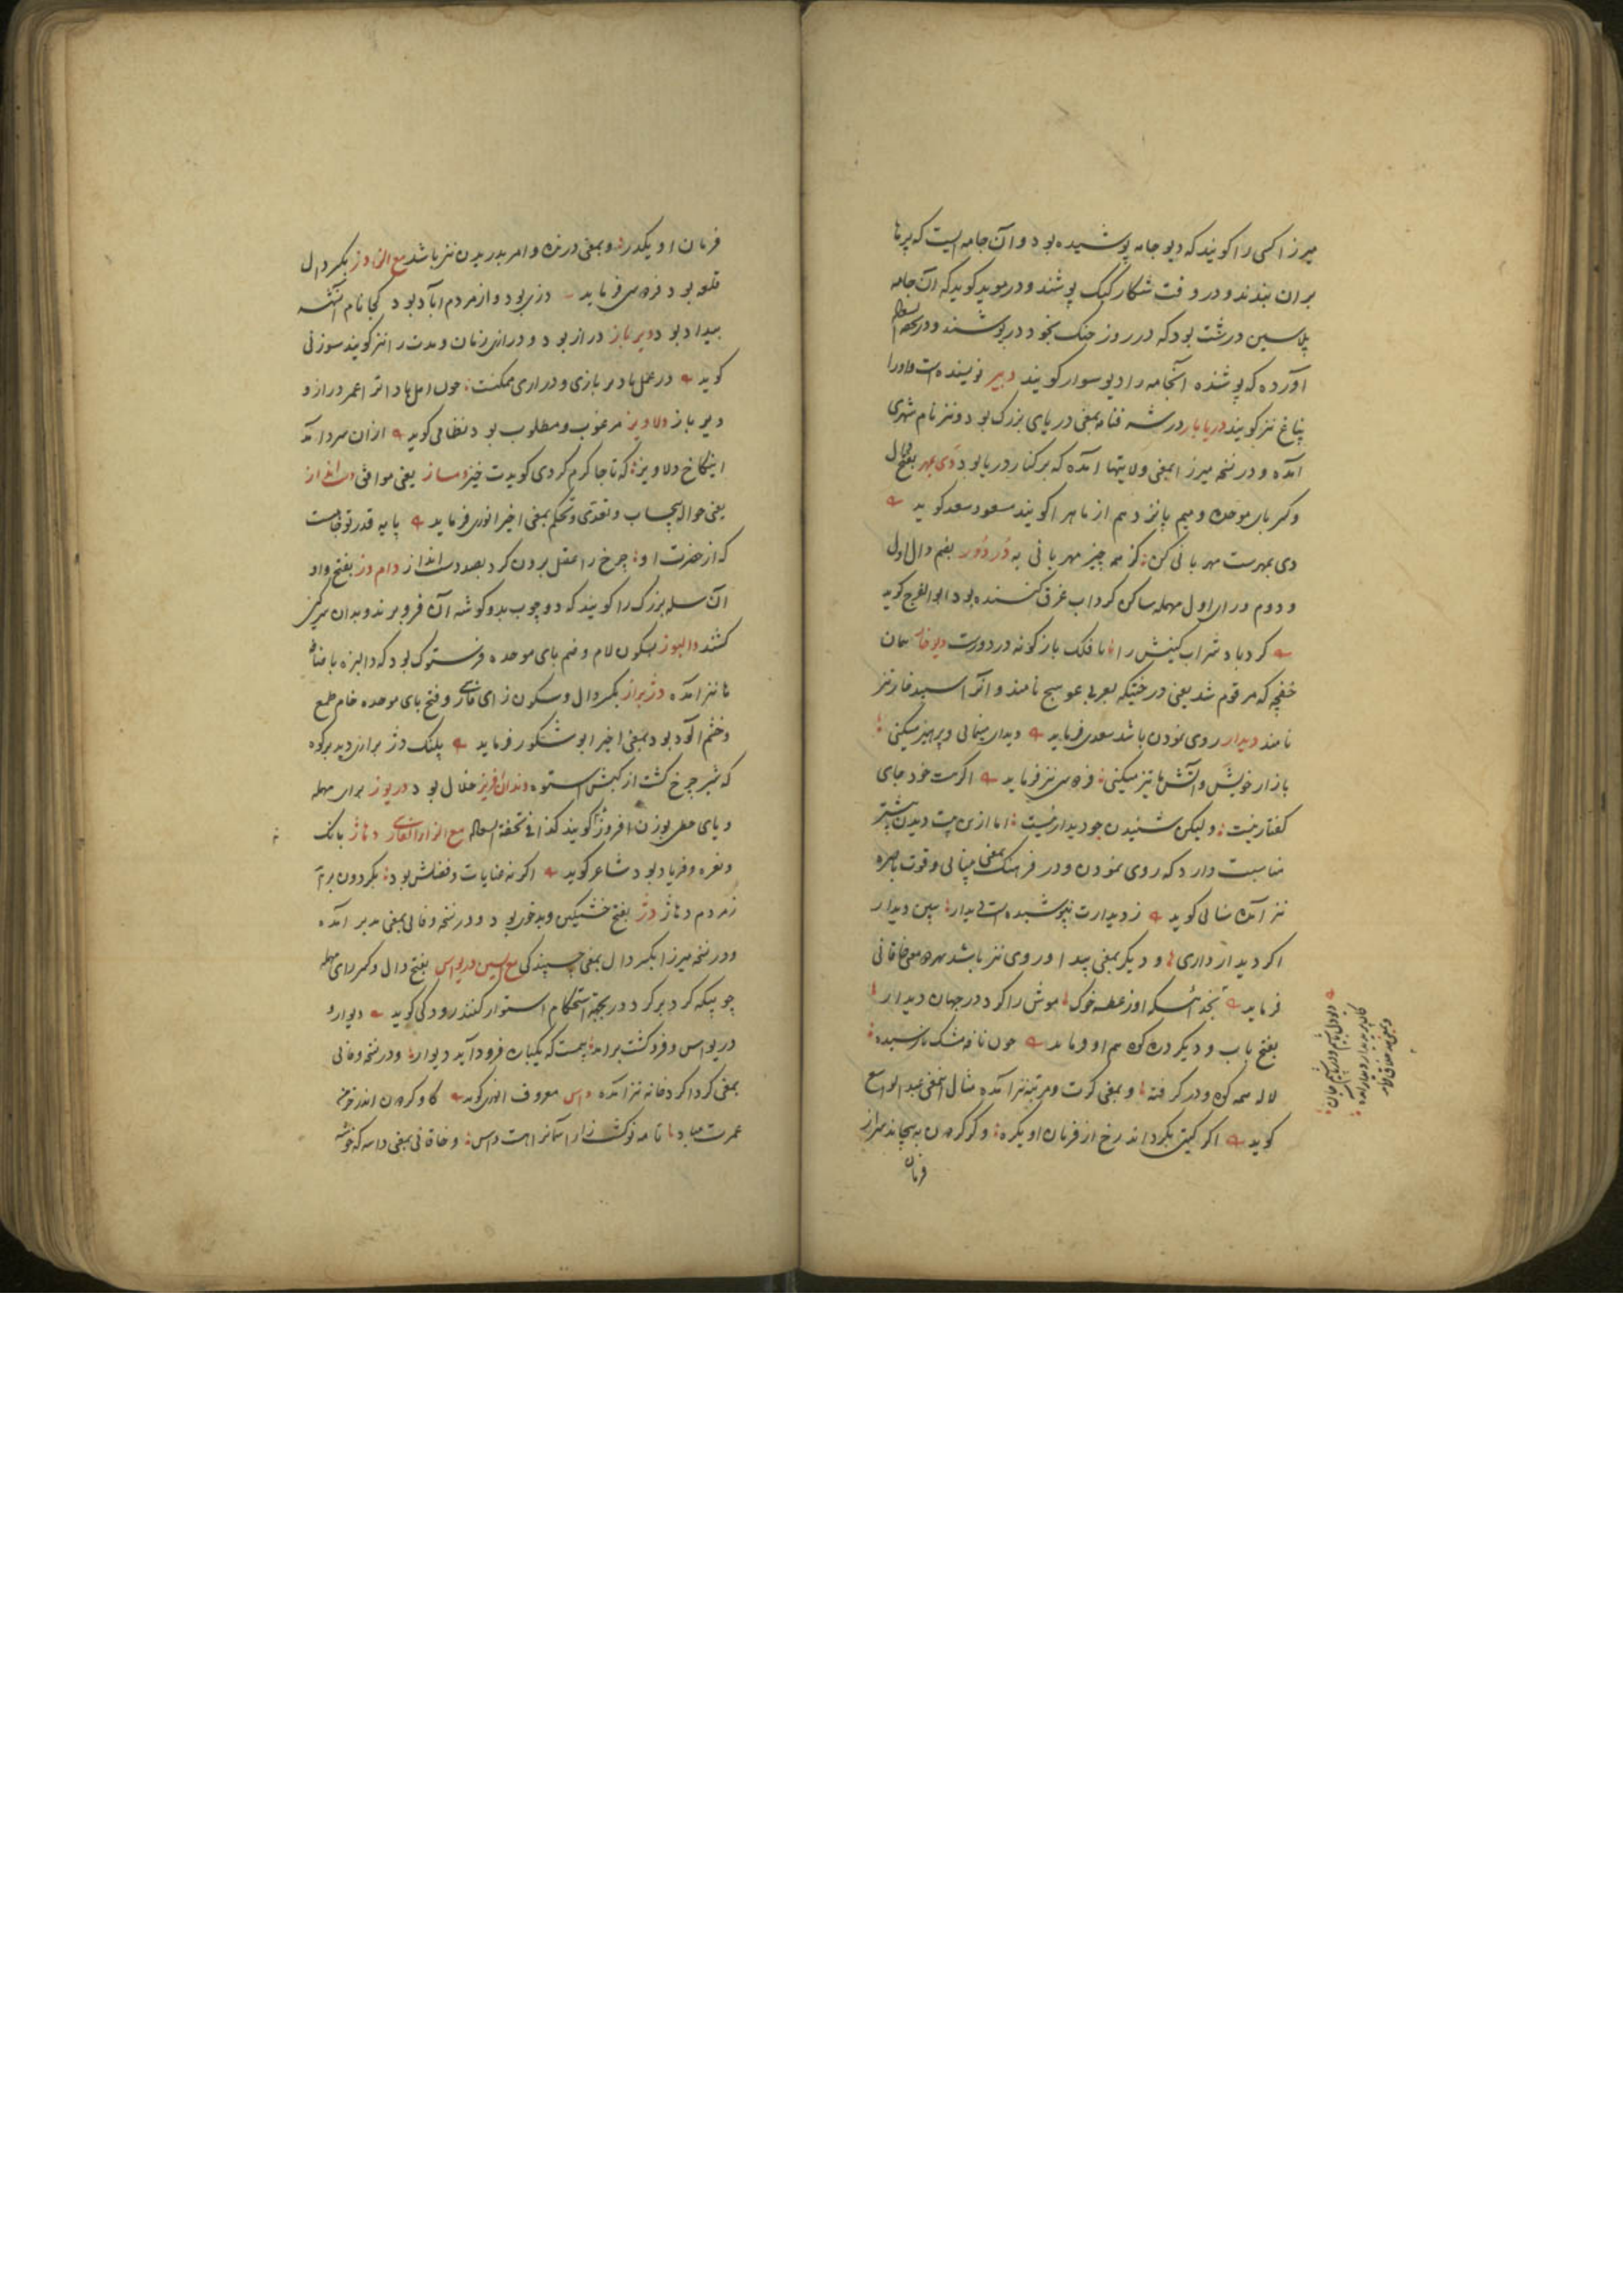 میرزا کسی را کویند که دیو جامه پوشیده بود و آن جامه ایست که پرها
بران بندند و در وقت شکار کبک پوشند و در موید کوید که آن جامه
پلاسین درشت بود که در روز جنک بخود در پوشند و در تحفه
آورده که پوشنده آنجامه را دیو سوار کویند دبیر نویسنده است و او را
نیز کویند دریابار در بمعنی دریای بزرک بود و نیز نام شهری
آمده و در نسخه میرزا بمعنی ولایتها آمده که بر کنار دریا بود دی بمهر بفتح دال
و کسر بای موحده و میم پانزدهم از ماه را کویند مسعود سعد کوید
دی بمهرست مهربانی کن کز همه چیز مهربانی به دردور بضم دال اول
و دوم و رای اول مهمله ساکن کرداب غرق کننده بود ابو الفرج کوید
کرداب شراب کینش را با فلک باز کونه دردورست دیوخار همان
خفچه که مرقوم شد یعنی درختیکه بعربی عوسج نامند و آنرا اسپید خار نیز
نامند دیدار روی نمودن باشد سعدی فرماید دیدار مینمائی و پرهیز میکنی
بازار خویش و آتش ما تیز میکنی فردوسی نیز فرماید اکرچت خود جای
کفتار نیست ولیکن شنیدن چو دیدار نیست اما ازین بیت دیدن بیشتر
مناسبت دارد که روی نمودن و در فرهنک بمعنی بینائی و قوت باصره
نیز آمده کوید ز دیدارت نپوشیده است دیدار ببین دیدار
اکر دیدار داری و دیکر بمعنی پیدا و روی نیز باشد خاقانی
فرماید اوز عطسه خوک موش را کرد در جهان دیدار
بفتح باب و دیکر دره کوه هم او فرماید چون نافه مشک نارسیده
لاله همه کوه و در کرفته و بمعنی کرت و مرتبه نیز آمده مثال این معنی عبد الواسع
کوید اکر کیتی بکرداند رخ از فرمان او یکره و کر کردون بپیچاند سر از
فرمان
فرمان او یکدر و بمعنی درنده و امر بدریدن نیز باشد مع الزاء دز بکسر دال
قلعه بود فردوسی فرماید دزی بود و از مردم آباد بود کجا نام آنشه
بیداد بود دیر باز دراز بود و درازی زمان و مدت را نیز کویند سوزنی
کوید در عمل باد دیر بازی و درازی ممکنست چون امل باد اثر اعمر دراز و
دیر باز دلاویز مرغوب و مطلوب بود نظامی کوید ازان سرد آمد
این کاخ دلاویز که تا جا کرم کردی کویدت خیز دمساز یعنی موافق دست انداز
یعنی حواله بیحساب و تعدی و تحکم بمعنی اخیر انوری فرماید پایه قدر تو خاست
که از حضرت او چرخ را عقل برون کرد بصد دست انداز دام دز بفتح واو
آن سله بزرک را کویند که دو چوب بدو کوشه آن فرو برند و بدان سرکین
کشند دالبوز بسکون لام و ضم بای موحده فرستوک بود که دالبزه باضافه
ها نیز آمده دژبراز بکسر دال و سکون زای فارسی و فتح بای موحده خام طمع
و خشم آلود بود بمعنی اخیر ابو شکور فرماید پلنک دژ برازی دید بر کوه
که شیر چرخ کشت از کینش ستوه دندان افریز خلال بود دریوز برای مهمله
و یای حطی بوزن افروز کویند کذا فی تحفة مع الزاء الفارسی دهاژ بانک
و نعره و فریاد بود شاعر کوید اکر نه عنایات و فضلش بود بکردون برآ
ز مردم دهاژ دژ بفتح خشمکین و بدخوی بود و در نسخه وفائی بمعنی مدبر آمده
و در نسخه میرزا بکسر دال بمعنی چسپندکی مع السین دریواس بفتح دال و کسر رای مهمله
چوبیکه کرد بر کرد در بجهته استحکام استوار کنند رودکی کوید دیوار و
دریواس فرو کشت و برآمد بیمست که یکباره فرود آید دیوار و در نسخه وفائی
بمعنی کرداکرد خانه نیز آمده داس معروف انوری کوید کاو کردون اندر خرمن
عمرت مباد تا مه نو کشت زار آسمانرا هست داس و خاقانی بمعنی داسه که خوشه